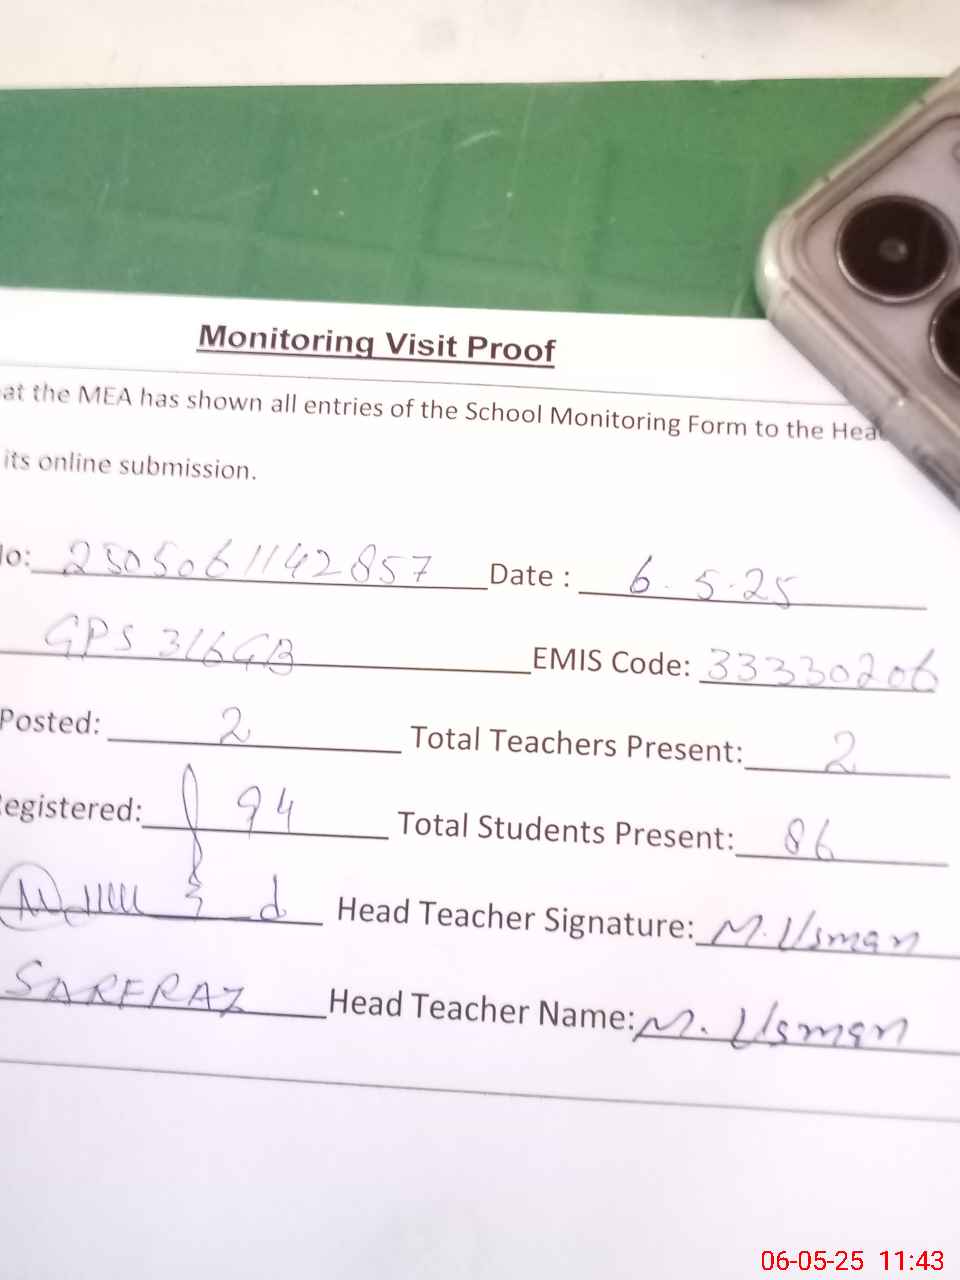 Monitoring Visit Proof
at the MEA has shown all entries of the School Monitoring Form to the Hea
its online submission.
lo: 2505061142857 Date : 6.5.25
GPS 316GB EMIS Code: 33330206
Posted: 2 Total Teachers Present: 2
egistered: 94 Total Students Present: 86
Head Teacher Signature: M. Usman
SARFRAZ Head Teacher Name: M. Usman
06-05-25 11:43